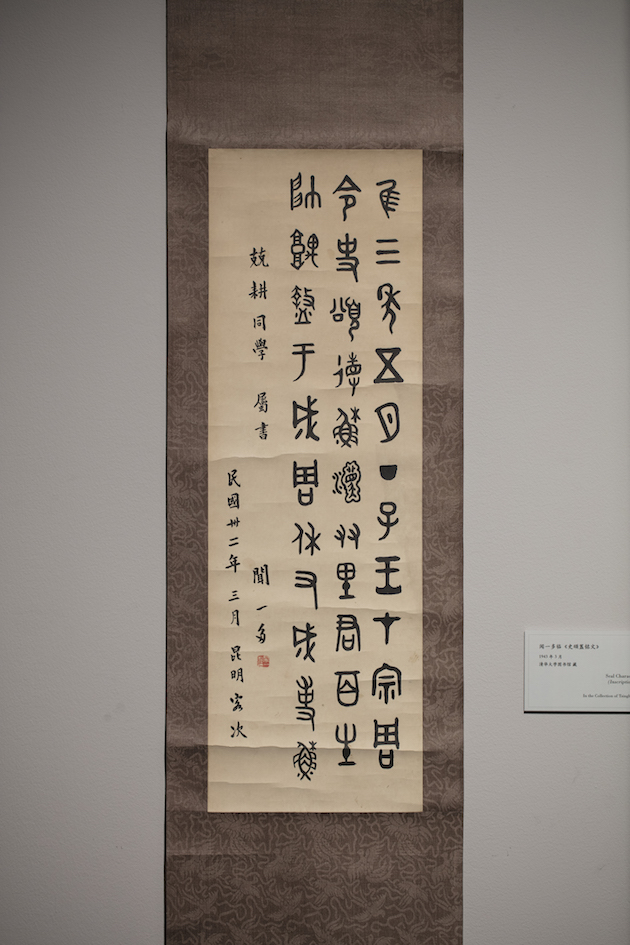 隹三年五月丁子王才宗周
令史頌徝穌友里君百生
帥盩于成周休又成事穌
耕同學 屬書 聞一多
民國卅二年三月昆明客次
聞一多臨《史頌簋銘文》
1943 年 3 月
清華大學圖書館 藏
Seal Charac
(Inscriptio
In the Collection of Tsingh